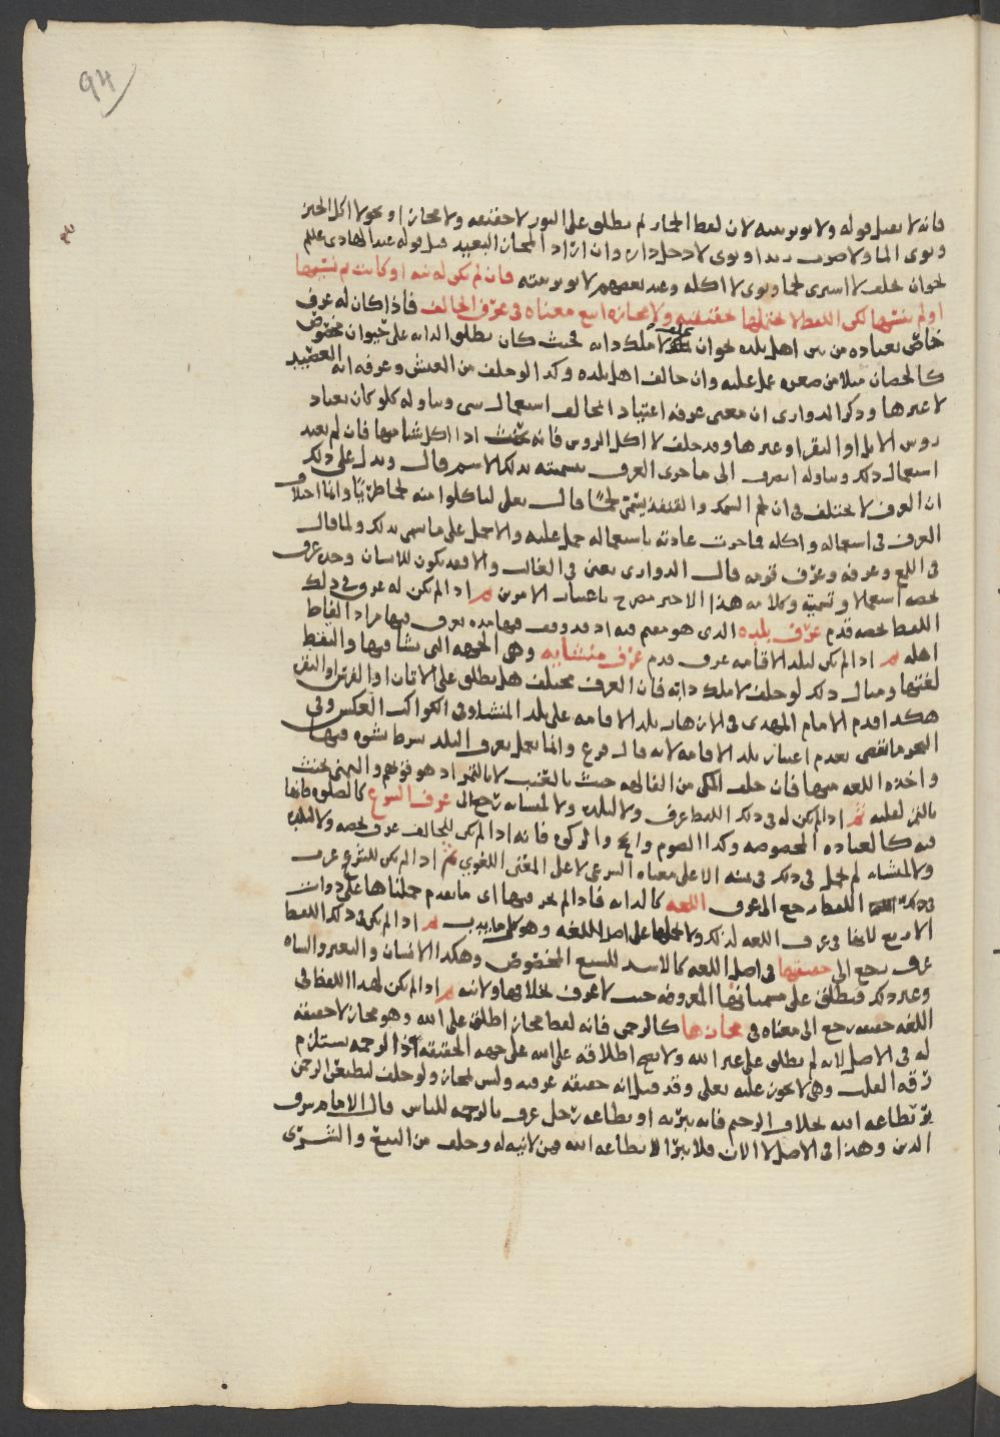 94
فانه لا يقبل قوله ولا يوثر نيته لان لفظ الحمار لم يطلق على الثور لا حقيقة ولا مجازا او نحو لا اكل الخبز
ونوى الما ولا ضرب زيدا ونوى لا دخل داره وان اراد المجاز البعيد قبل قوله عند الهادي علم
نحو ان يحلف لا اشترى لحما ونوى لا اكله وعند بعضهم لا يوثر نيته فان لم يكن له نيه او كانت ثم نسيها
او لم ينسها لكن اللفظ لا يحتملها بحقيقته ولا مجازه اتبع معناه في عرف الحالف فاذا كان له عرف
خاص يعتاده من بين اهل بلده نحو ان لا ملك دابه بحيث كان يطلق الدابه على حيوان مخصوص
كالحصان مثلا من صغره عمل عليه وان خالف اهل بلده وكذا لو حلف من العيش وعرفه انه العصيد
لا غيرها وذكر الدواري ان معنى عرفه اعتياد الحالف استعمال شي وتناوله كلو كان يعتاد
روس الابل او البقر او غيرها وقد حلف لا اكل الروس فانه يحنث اذا اكل شيا منها فان لم يعتد
استعمال ذلك وتناوله انصرف الى ما جرى العرف بتسميته بذلك الاسم قال ويدل على ذلك
ان العرف لا يختلف في ان لحم السمك والقنفذ يسمى لحمًا قال تعالى لتاكلوا منه لحما طريًا وانما اختلاف
العرف في استعماله واكله فما جرت عادته باستعماله حمل عليه والا حمل على ما سمي بذلك ولما قال
في اللمع وعرفه وعرف قومه قال الدواري يعني في الغالب والا فقد يكون للانسان وحده عرف
يخصه استعمالا وتسمية وكلامه هذا الاخير مصرح باعتبار الامرين ثم اذا لم يكن له عرف في ذلك
اللفظ يخصه قدم عرف بلده الذي هو مقيم فيه اذ قد وقف فيها مده يعرف فيها مراد الفاظ
اهله ثم اذا لم يكن لبلد الاقامه عرف قدم عرف منشايه وهي الجهه التي نشا فيها والتقط
لغتها ومثال ذلك لو حلف لا ملك دابه فان العرف مختلف هل يطلق على الاتان او الفرس او البقر
هكذا قدم الامام المهدي في الازهار بلد الاقامه على بلد المنشا وفي الكواكب العكس وفي
البحر ما يقضي بعدم اعتبار بلد الاقامه لانه قال فرع وانما يعمل بعرف البلد بشرط نشوه فيها
واخذه اللغه منها فان حلف المكي من الفاكهه حنث بالعنب لا بالتمر اذ هو قوتهم واليمني يحنث
بالتمر لقلته ثم اذا لم يكن له في ذلك اللفظ عرف ولا لبلده ولا لمنشايه رجع الى عرف الشرع كالصلوه فانها
فيه كالعباده المخصوصه وكذا الصوم والحج والزكوه فانه اذا لم يكن للحالف عرف يخصه ولا لبلده
ولا لمنشايه لم يحمل في ذلك في يمينه الا على معناه الشرعي لا على المعنى اللغوي ثم اذا لم يكن للشرع عرف
في ذلك اللفظ رجع الى عرف اللغه كالدابه فاذا لم يجر فيها اي ما تقدم حملناها على ذوات
الاربع لانها في عرف اللغه لذلك ولا نحملها على اصل اللغه وهو كل ما يدب ثم اذا لم يكن في ذلك اللفظ
عرف رجع الى حقيقتها في اصل اللغه كالاسد للسبع المخصوص وهكذا الانسان والبعير والشاه
وغير ذلك فيطلق على مسمياتها المعروفه حيث لا عرف بخلافها ولا نيه ثم اذا لم يكن لهذا اللفظ في
اللغه حقيقه رجع الى معناه في مجازها كالرحمن فانه لفظ مجاز اطلق على الله وهو مجاز لا حقيقه
له في الاصل لانه لم يطلق على غير الله ولا يصح اطلاقه على الله على جهه الحقيقه اذ الرحمه يستلزم
رقه القلب وهي لا يجوز عليه تعالى وقد قيل انه حقيقه عرفيه وليس بمجاز ولو حلف ليطيعن الرحمن
بر بطاعه الله بخلاف الرحيم فانه يبر به او بطاعه رجل عرف بالرحمه للناس قال الامام شرف
الدين وهذا في الاصل لا الان فلا يبر الا بطاعه الله فمن لا نيه له وحلف من البيع والشرى